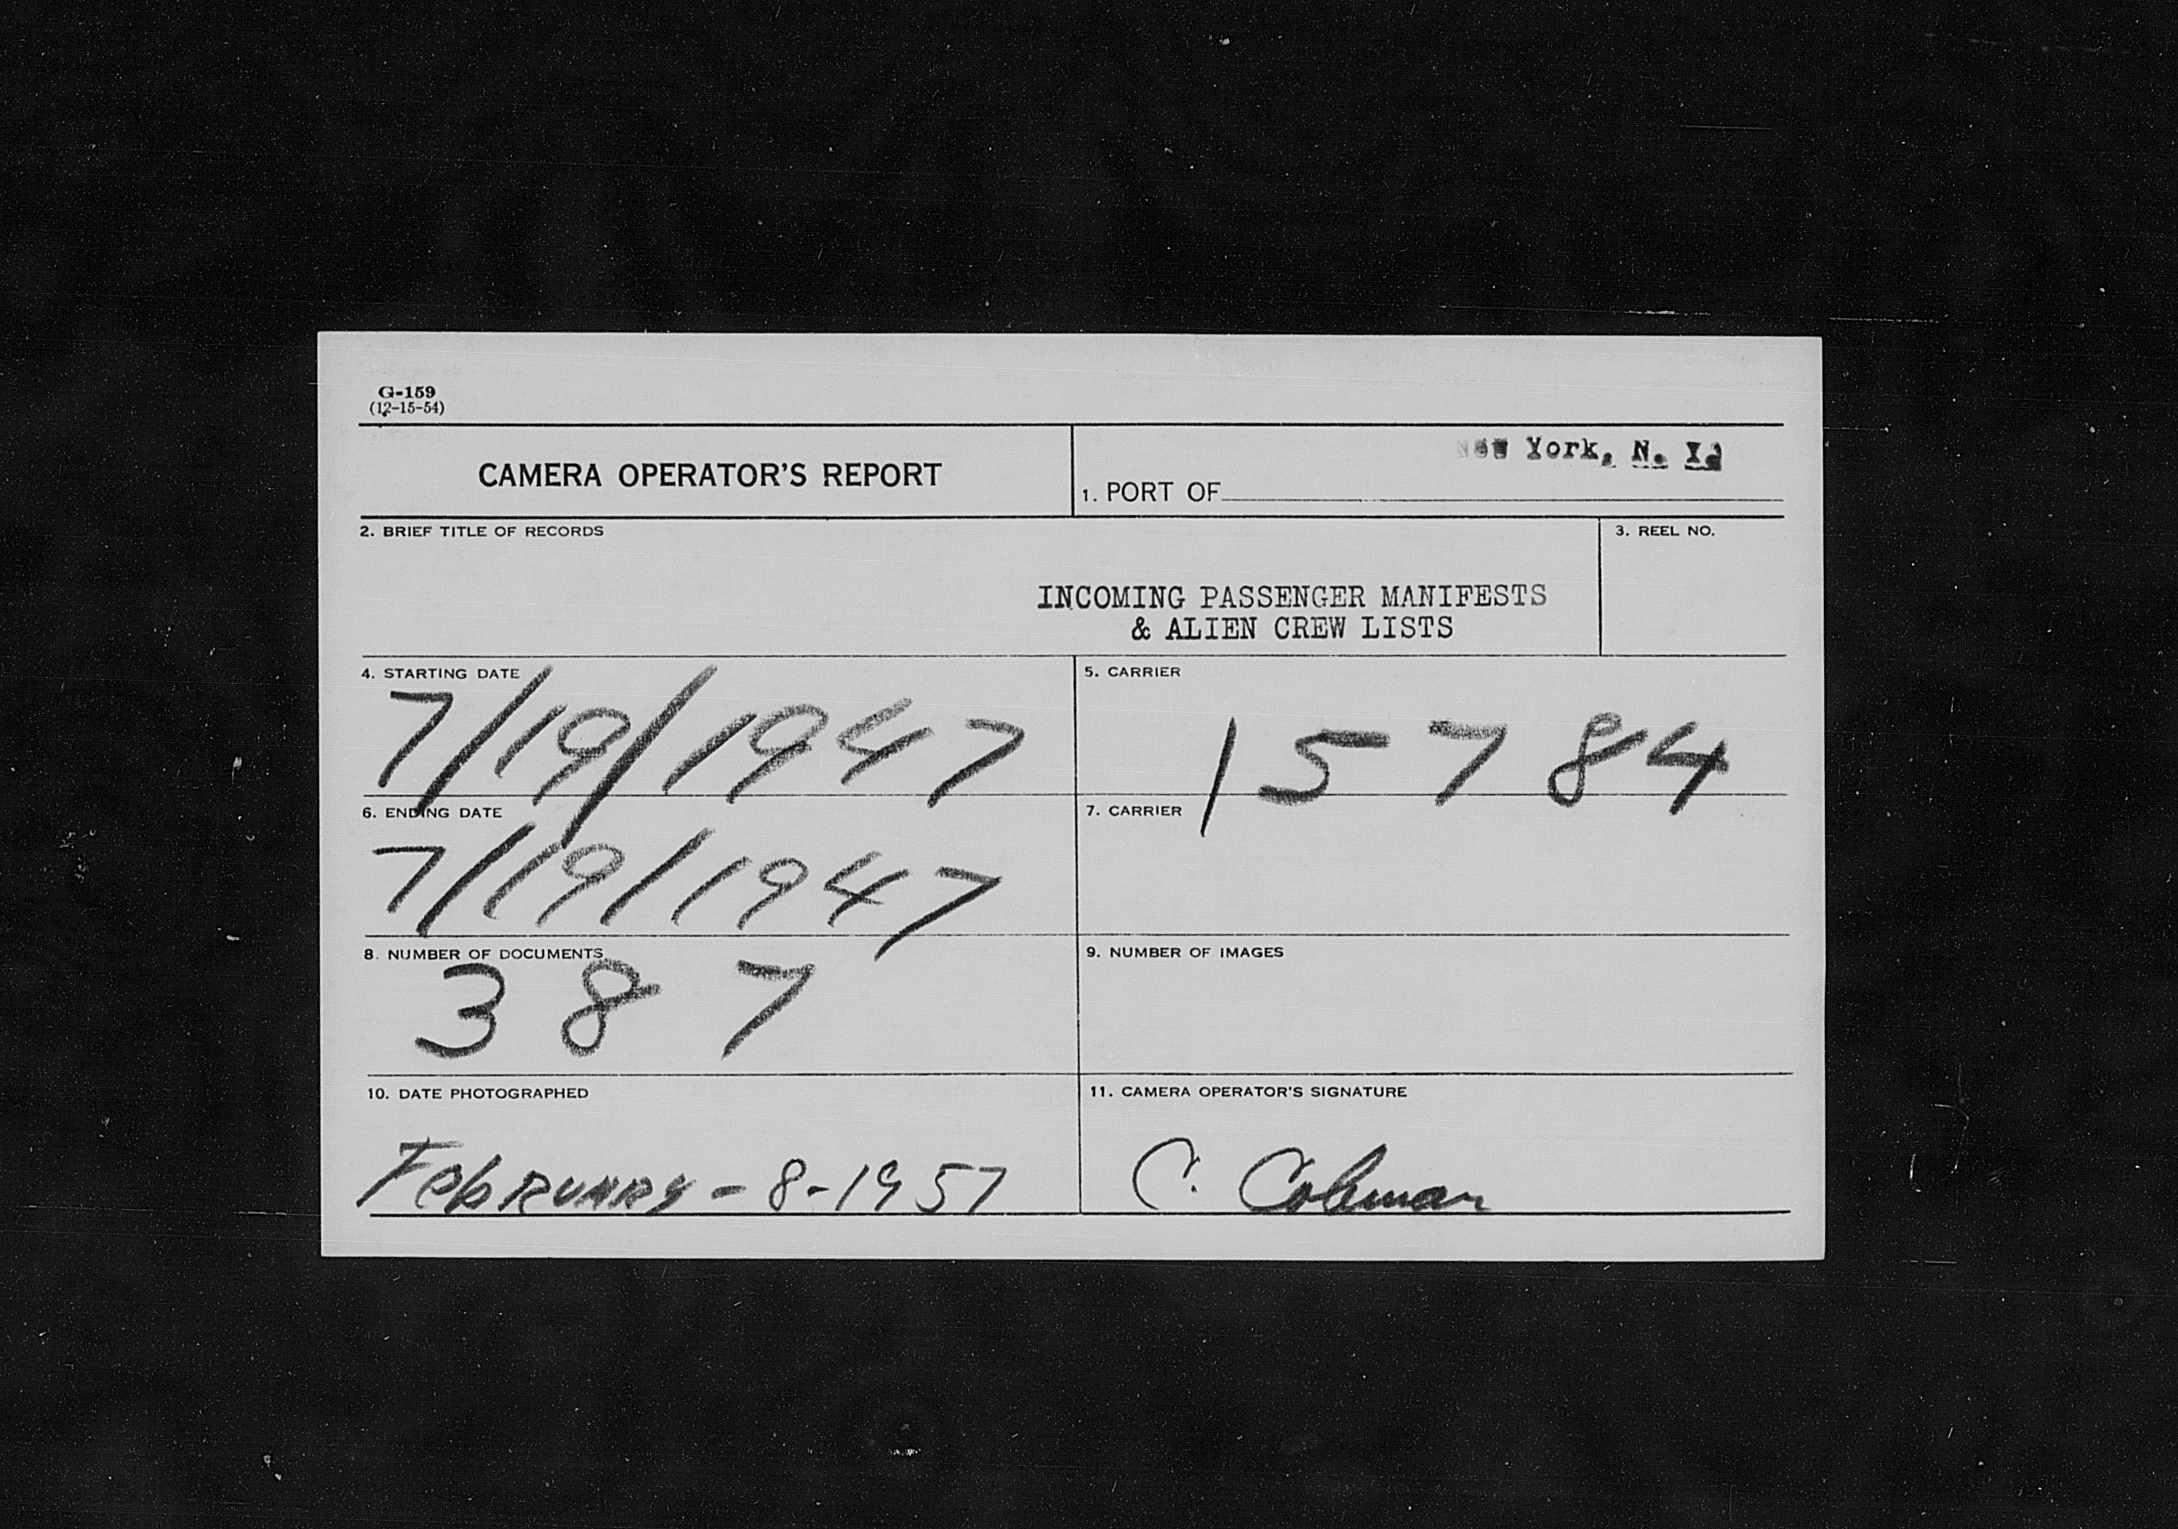 G-159
(12-15-54)
CAMERA OPERATOR'S REPORT
New York, N. Y.
1. PORT OF
2. BRIEF TITLE OF RECORDS
3. REEL NO.
INCOMING PASSENGER MANIFESTS
& ALIEN CREW LISTS
4. STARTING DATE
7/19/1947
5. CARRIER
15784
6. ENDING DATE
7/19/1947
7. CARRIER
8. NUMBER OF DOCUMENTS
387
9. NUMBER OF IMAGES
10. DATE PHOTOGRAPHED
February-8-1957
11. CAMERA OPERATOR'S SIGNATURE
C. Coleman